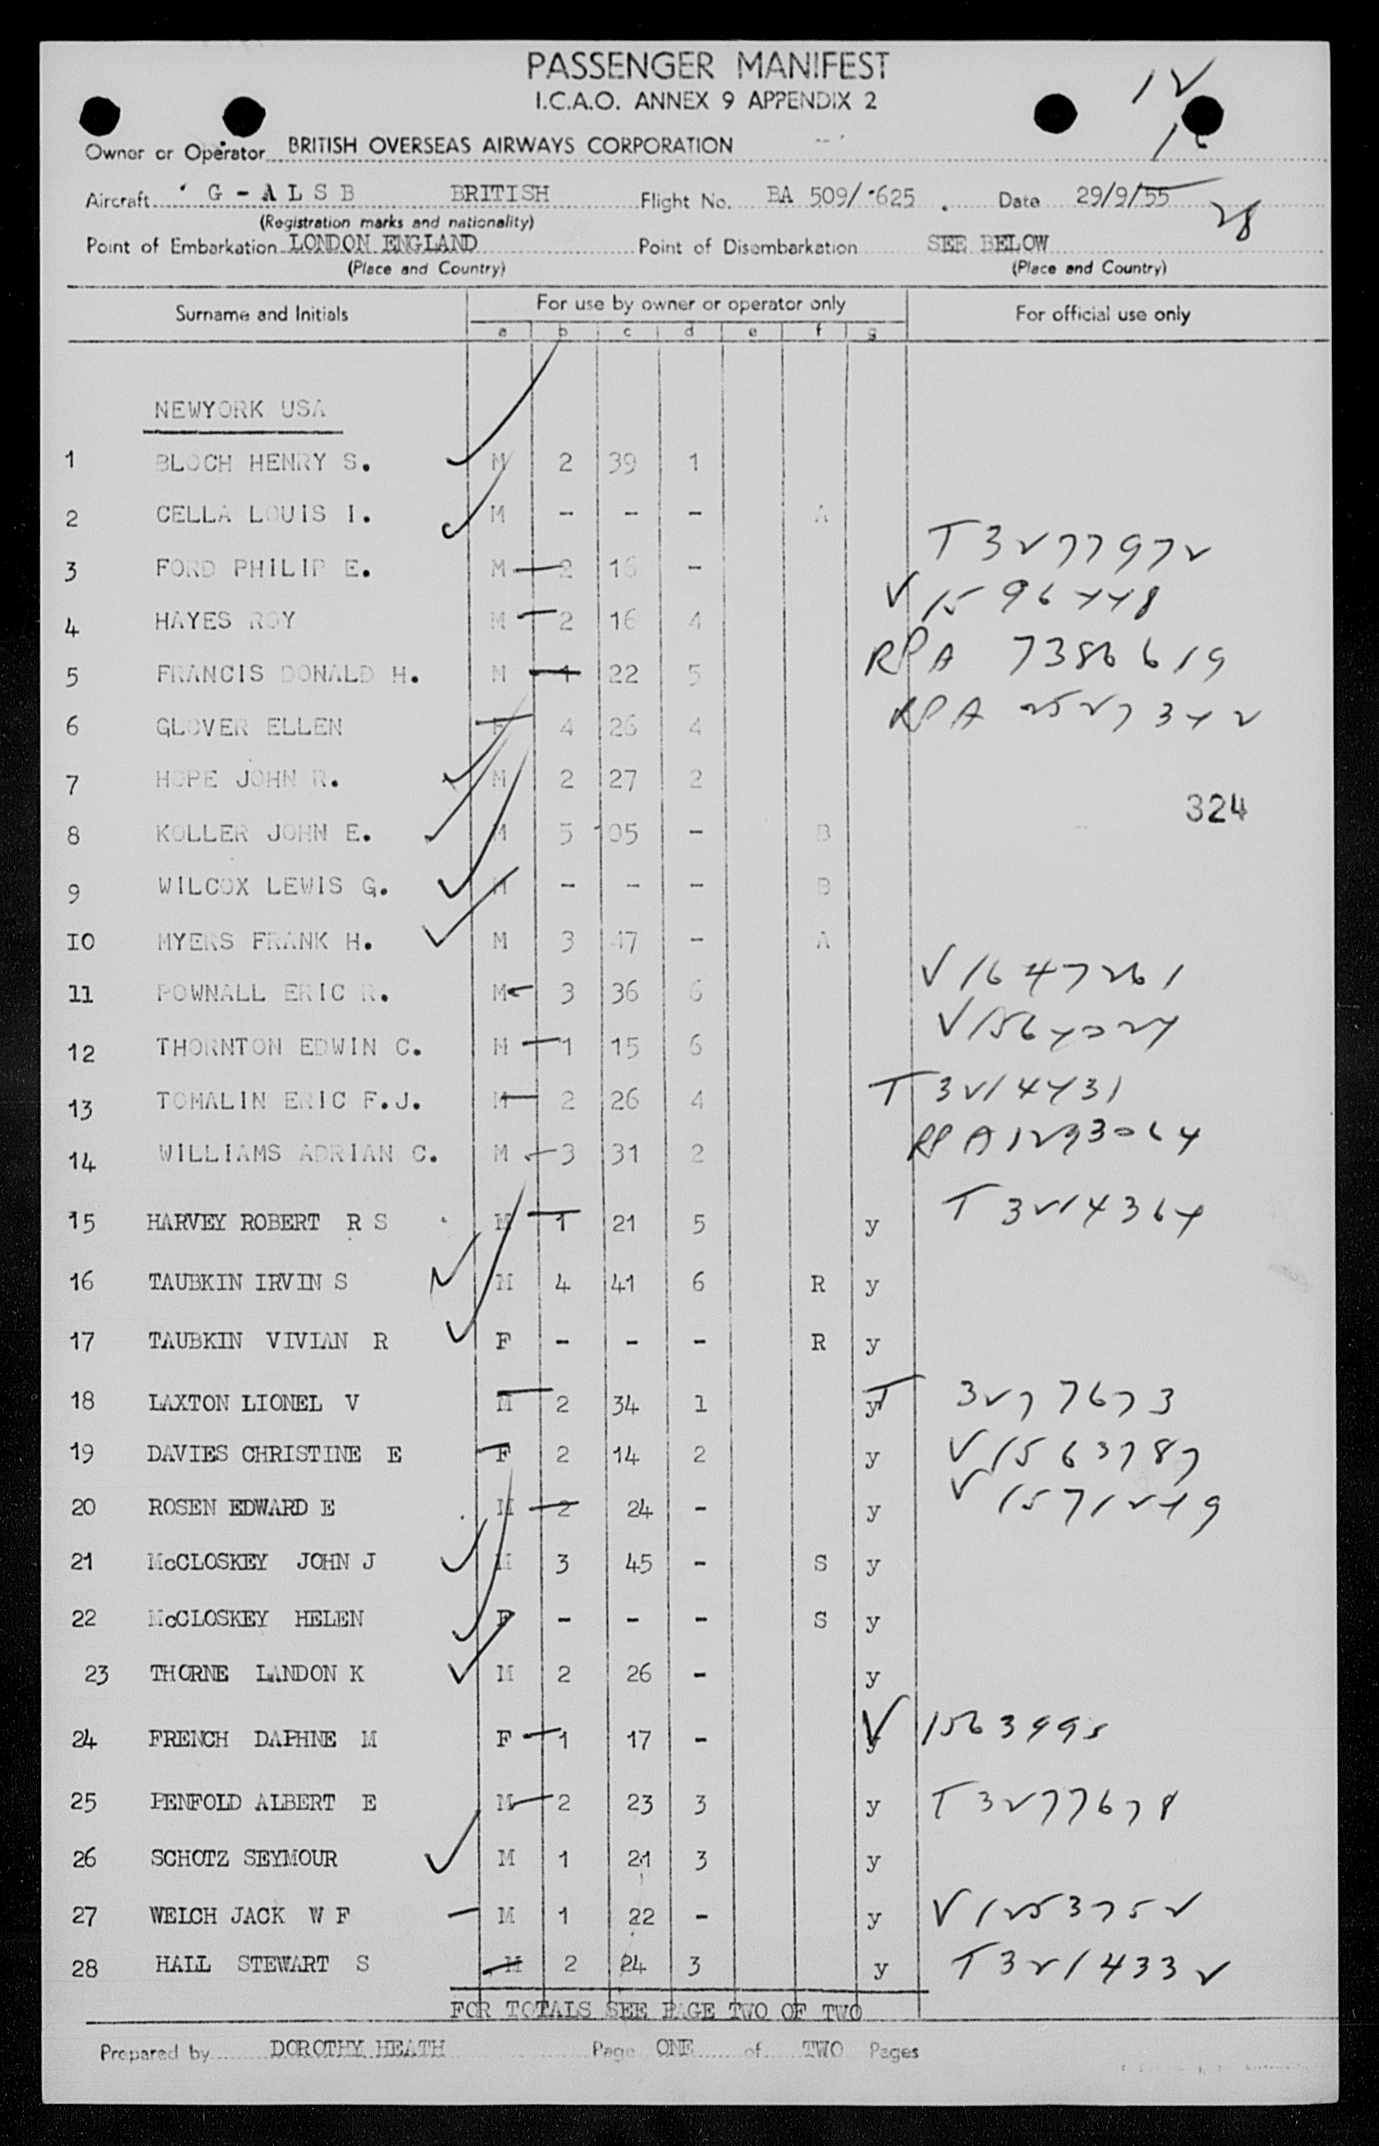 PASSENGER MANIFEST
I.C.A.O. ANNEX 9 APPENDIX 2
12
Owner or Operator BRITISH OVERSEAS AIRWAYS CORPORATION
16
Aircraft G - A L S B BRITISH Flight No. BA 509/ 625 Date 29/9/55
(Registration marks and nationality)
28
Point of Embarkation LONDON ENGLAND Point of Disembarkation SEE BELOW
(Place and Country) (Place and Country)
Surname and Initials For use by owner or operator only For official use only
a b c d e f g
NEWYORK USA
1 BLOCH HENRY S. M 2 39 1
2 CELLA LOUIS I. M - - - A
3 FORD PHILIP E. M 2 16 - T 3277972
4 HAYES ROY M 2 16 4 V 1596448
5 FRANCIS DONALD H. M 1 22 5 RPA 7386619
6 GLOVER ELLEN F 4 26 4 RPA 2527342
7 HOPE JOHN R. M 2 27 2
324
8 KOLLER JOHN E. M 5 105 - B
9 WILCOX LEWIS G. M - - - B
10 MYERS FRANK H. M 3 47 - A
11 POWNALL ERIC R. M 3 36 6 V 1647261
12 THORNTON EDWIN C. M 1 15 6 V 1564024
13 TOMALIN ERIC F.J. M 2 26 4 T 3214431
14 WILLIAMS ADRIAN C. M 3 31 2 RPA 1293064
15 HARVEY ROBERT R S M 1 21 5 y T 3214364
16 TAUBKIN IRVIN S M 4 41 6 R y
17 TAUBKIN VIVIAN R F - - - R y
18 LAXTON LIONEL V M 2 34 1 y T 3277673
19 DAVIES CHRISTINE E F 2 14 2 y V 1563787
20 ROSEN EDWARD E M 2 24 - y V 1571249
21 McCLOSKEY JOHN J M 3 45 - S y
22 McCLOSKEY HELEN F - - - S y
23 THORNE LANDON K M 2 26 - y
24 FRENCH DAPHNE M F 1 17 - y V 1563995
25 PENFOLD ALBERT E M 2 23 3 y T 3277678
26 SCHOTZ SEYMOUR M 1 21 3 y
27 WELCH JACK W F M 1 22 - y V 1253752
28 HALL STEWART S M 2 24 3 y T 3214332
FOR TOTALS SEE PAGE TWO OF TWO
Prepared by DOROTHY HEATH Page ONE of TWO Pages